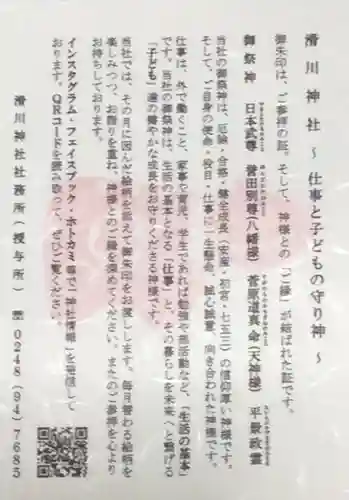 滑川神社 ～ 仕事と子どもの守り神 ～
御朱印は、ご参拝の証。そして、神様との「ご縁」が結ばれた証です。
御祭神 日本武尊 誉田別尊(八幡様) 菅原道真命(天神様) 平景政霊
当社の御祭神は、厄除・合格・健全成長(安産・初宮・七五三)の信仰厚い神様です。
そして、ご自身の使命・役目・仕事に一生懸命、誠心誠意、向き合われた神様です。
仕事は、外で働くこと、家事や育児、学生であれば勉強や部活動など、「生活の基本」
です。当社の御祭神は、生活の基本となる「仕事」と、その暮らしを未来へと繋げる
「子ども」達の健やかな成長をお守りくださる神様です。
当社では、その月に因んだ絵柄を添えて御朱印をお渡しします。毎月替わる絵柄を
楽しみつつ、お詣りを重ね、神様とのご縁を深めてください。またのご参拝を心より
お待ちしております。
インスタグラム・フェイスブック・ホトカミ等で「神社情報」を配信して
おります。QRコードを読み取って、ぜひご覧ください。
滑川神社社務所(授与所) ☎0248(94)7685